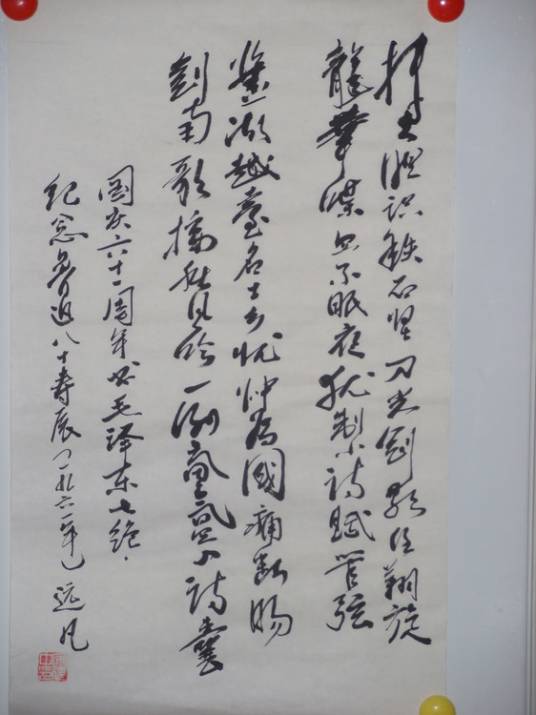 博大胆识铁石坚刀光剑影任翔旋
龍華喋血不眠夜犹制小诗赋管弦
鉴湖越臺名士乡忧忡为國痛断肠
剑南歌接秋风吟一例氤氲入诗囊
國庆六十一周年书毛泽东七绝·
纪念鲁迅八十寿辰(一九六一年) 远凡